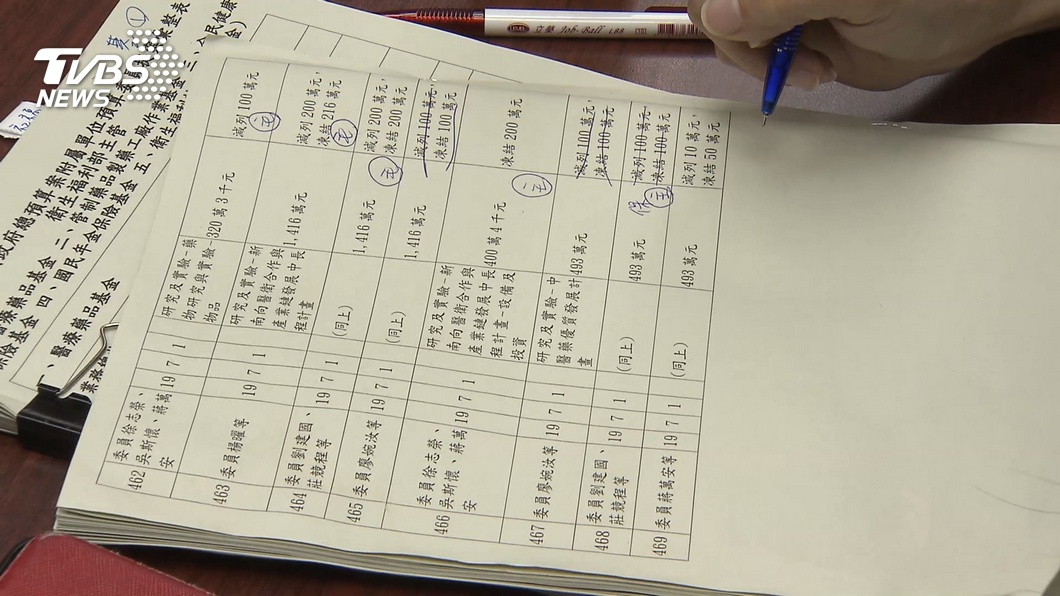 TVBS
NEWS
462 委員徐志榮、
吳斯懷、蔣萬
安
19 7 1
研究及實驗-藥
物研究與實驗-
物品
320 萬 3 千元
減列 100 萬元
主
463 委員楊曜等
19 7 1
研究及實驗-新
南向醫衛合作與
產業鏈發展中長
程計畫
1,416 萬元
減列 200 萬元,
凍結 216 萬元
主
464 委員劉建國、
莊競程等
19 7 1
(同上)
1,416 萬元
減列 200 萬元,
凍結 200 萬元
主
465 委員廖婉汝等
19 7 1
(同上)
1,416 萬元
減列 100 萬元,
凍結 100 萬元
466 委員徐志榮、
吳斯懷、蔣萬
安
19 7 1
研究及實驗-新
南向醫衛合作與
產業鏈發展中長
程計畫-設備及
投資
400 萬 4 千元
凍結 200 萬元
主
467 委員廖婉汝等
19 7 1
研究及實驗-中
醫藥優質發展計
畫
493 萬元
減列 100 萬元,
凍結 100 萬元
468 委員劉建國、
莊競程等
19 7 1
(同上)
493 萬元
減列 100 萬元,
凍結 100 萬元
主
469 委員蔣萬安等
19 7 1
(同上)
493 萬元
減列 10 萬元,
凍結 50 萬元
政府總預算案附屬單位預算
衛生福利部主管
醫療藥品基金 二、管制藥品製藥工廠作業基金 三、全民健康
保險基金 四、國民年金保險基金 五、衛生福利
一、醫療藥品基金
Job-Ball